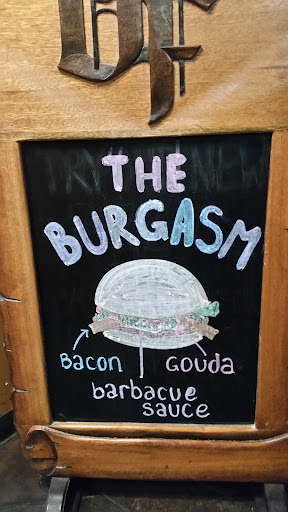 THE
BURGASM
Bacon
Gouda
barbacue
sauce